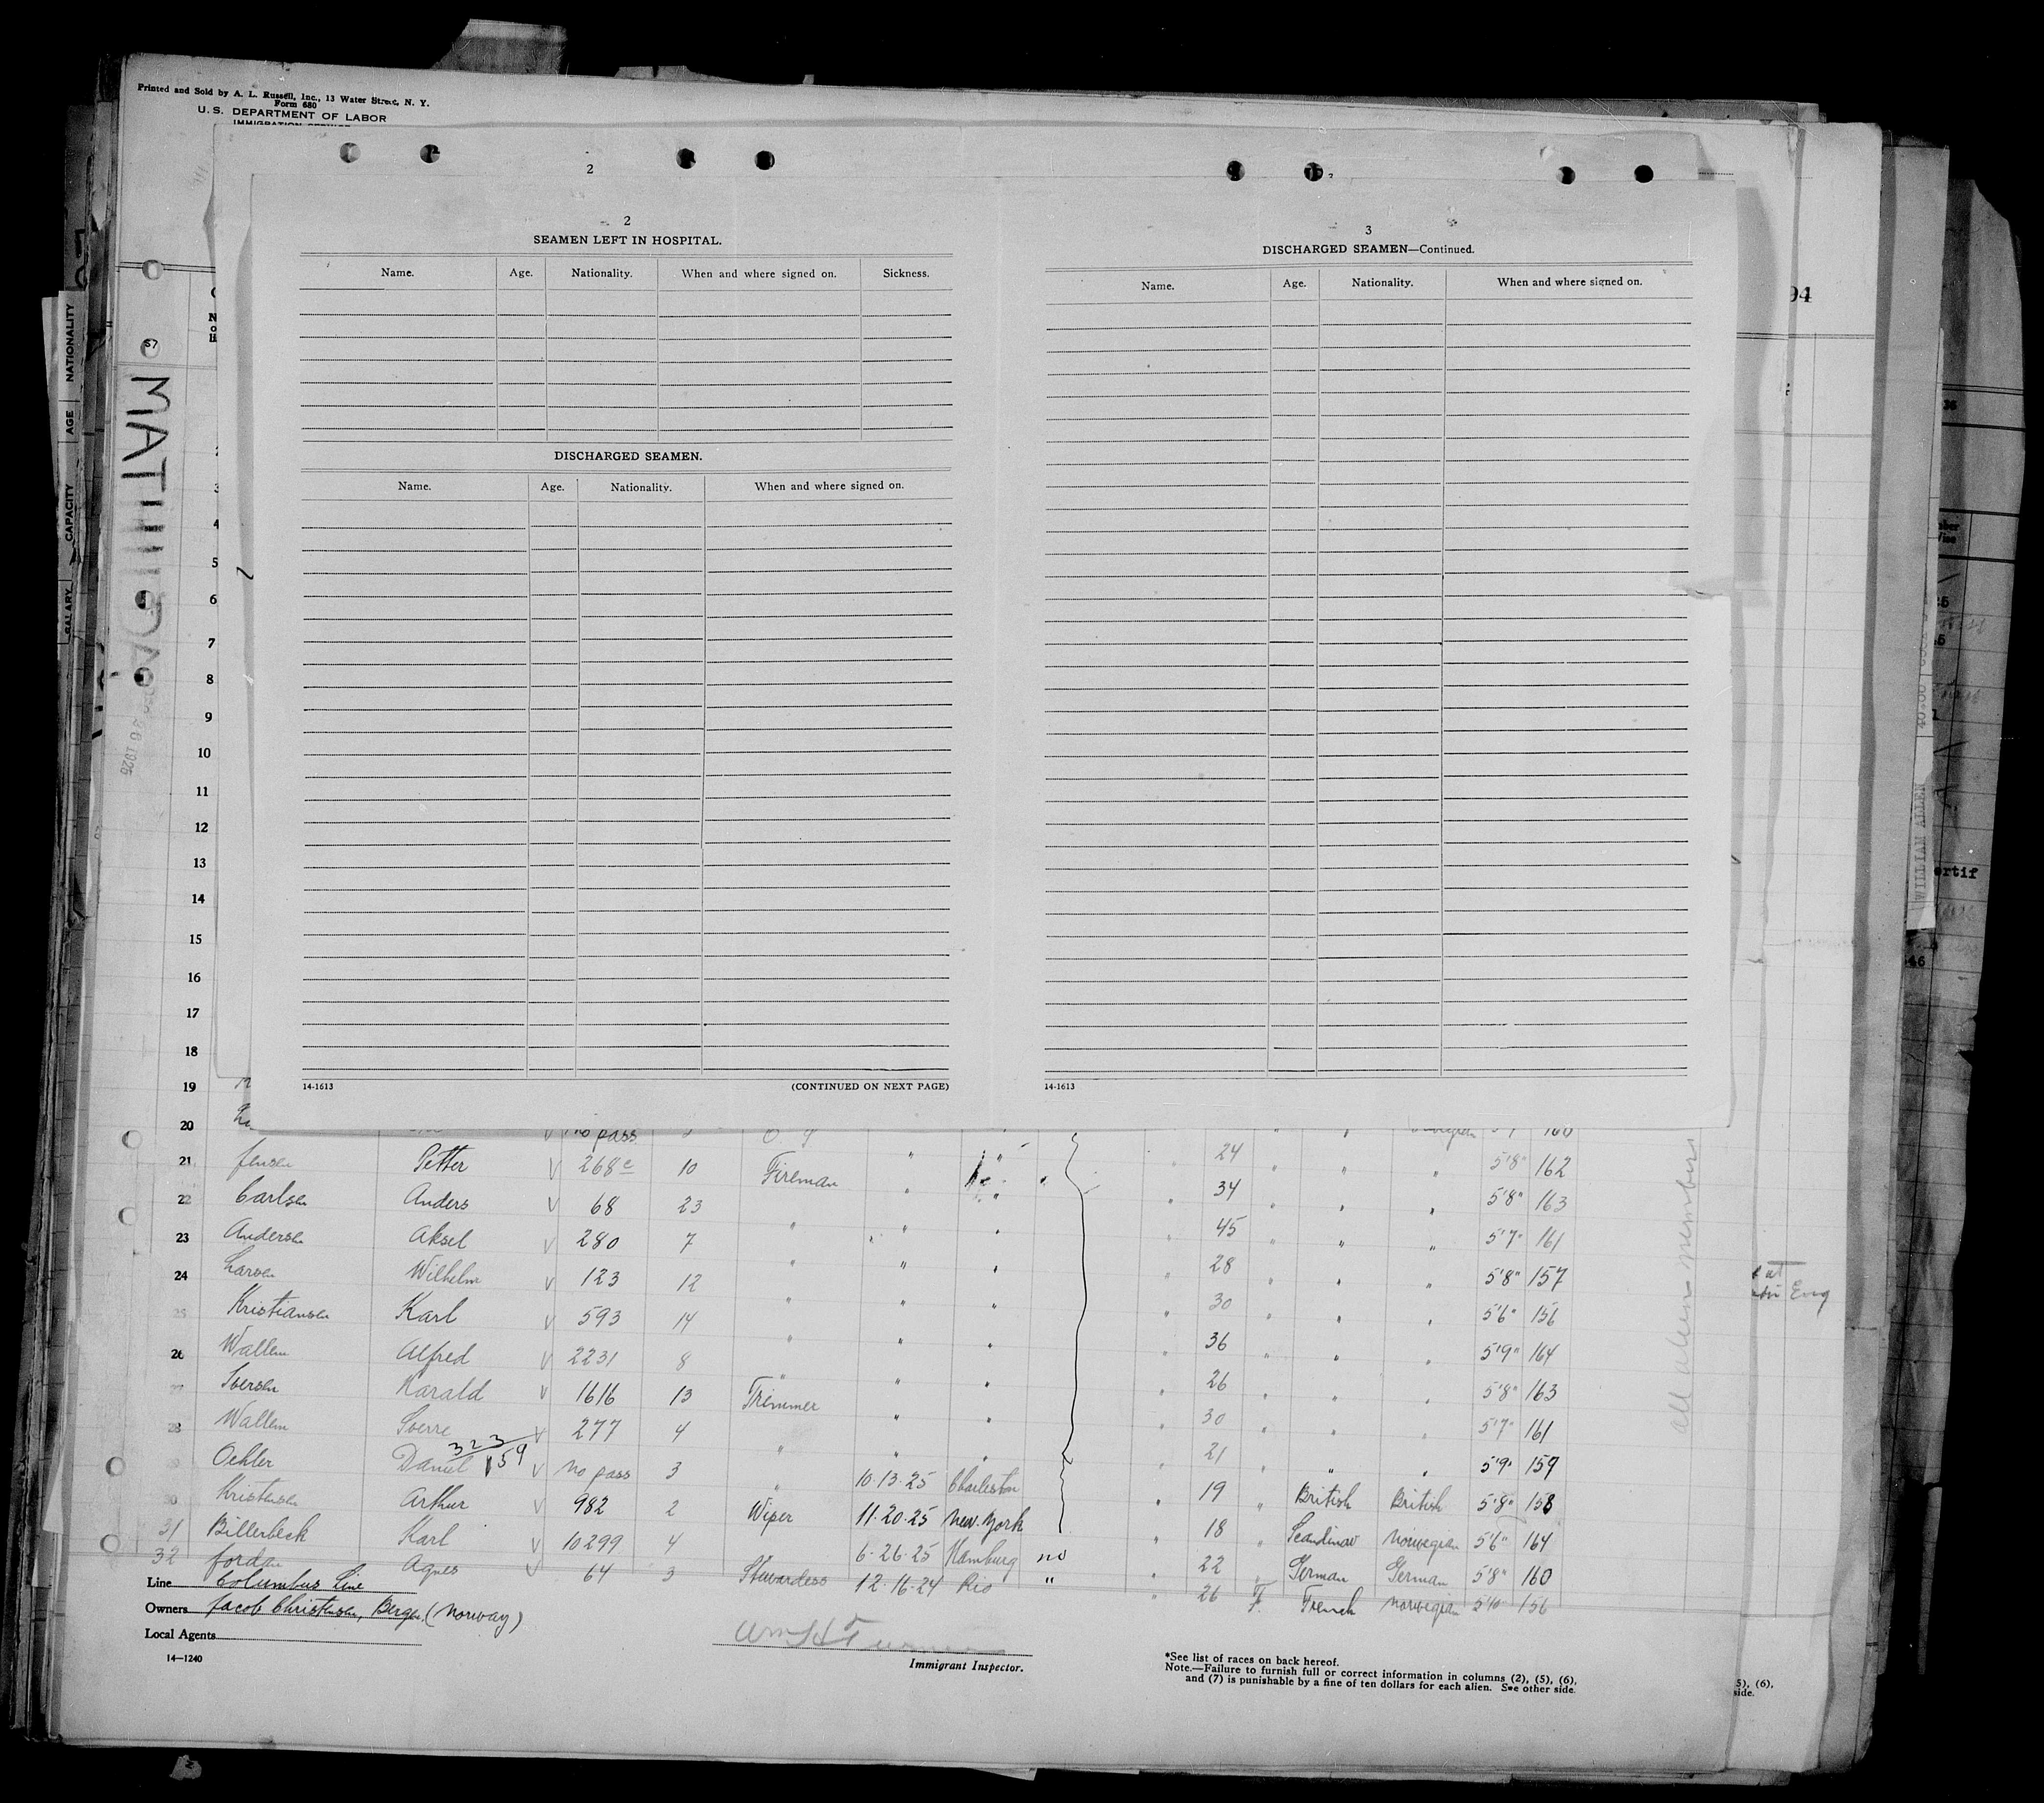 Printed and Sold by A. L. Russell, Inc., 13 Water Street, N. Y.
Form 680
U. S. DEPARTMENT OF LABOR
IMMIGRATION SERVICE
2
2
SEAMEN LEFT IN HOSPITAL.
Name. Age. Nationality. When and where signed on. Sickness.
DISCHARGED SEAMEN.
Name. Age. Nationality. When and where signed on.
14-1613 (CONTINUED ON NEXT PAGE)
3
DISCHARGED SEAMEN—Continued.
Name. Age. Nationality. When and where signed on.
14-1613
94
NATIONALITY
AGE
CAPACITY
SALARY
3
4
5
6
7
8
9
10
11
12
13
14
15
16
17
18
19
20 no pass 160
21 Jensen Petter V 268c 10 Fireman " " " 24 " " " 5'8" 162
22 Carlsen Anders V 68 23 " " 34 " " " 5'8" 163
23 Andersen Aksel V 280 7 " " " 45 " " " 5'7" 161
24 Larsen Wilhelm V 123 12 " " " 28 " " " 5'8" 157
25 Kristiansen Karl V 593 14 " " " 30 " " " 5'6" 156
26 Wallem Alfred V 2231 8 " " " 36 " " " 5'9" 164
27 Iversen Harald V 1616 13 Trimmer " " 26 " " " 5'8" 163
28 Wallem Sverre V 277 4 " " " 30 " " " 5'7" 161
323
59
29 Oehler Daniel V no pass 3 " 10-13-25 Charleston 21 " " " 5'9" 159
30 Kristensen Arthur V 982 2 Wiper 11-20-25 New-York " 19 " British British 5'8" 158
31 Billerbeck Karl V 10299 4 6-26-25 Hamburg no " 18 " Scandinav Norwegian 5'6" 164
32 Jordan Agnes V 64 3 Stewardess 12-16-24 Rio " " 22 " German German 5'8" 160
26 F. French Norwegian 156
all aliens members
Line Columbus Line
Owners Jacob Christensen, Bergen (Norway)
Local Agents
14—1240
Immigrant Inspector.
*See list of races on back hereof.
Note.—Failure to furnish full or correct information in columns (2), (5), (6),
and (7) is punishable by a fine of ten dollars for each alien. See other side.
5), (6),
side.